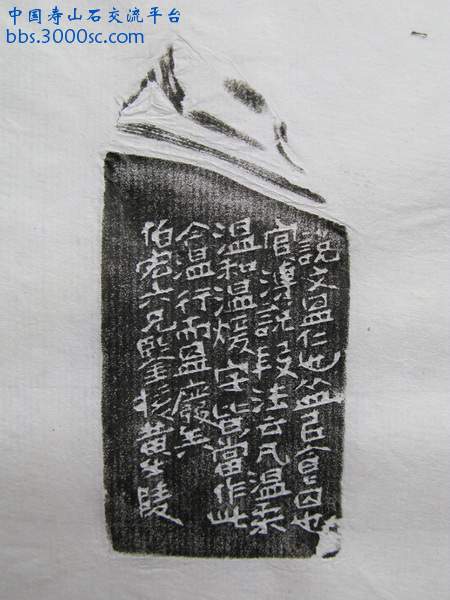 中国寿山石交流平台
bbs.3000sc.com
說文昷仁也从皿㠯食囚也
官溥說段注云凡溫柔
溫和溫煖字皆當作此
今溫行而昷廢矣
伯六兄黃士陵